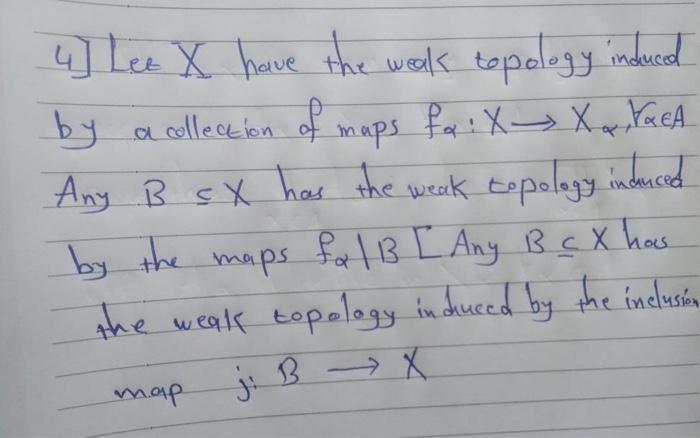 4] Let X have the weak topology induced
by a collection of maps fα : X → Xα, ∀α∈A
Any B ⊆ X has the weak topology induced
by the maps fα|B [ Any B ⊆ X has
the weak topology induced by the inclusion
map j: B → X